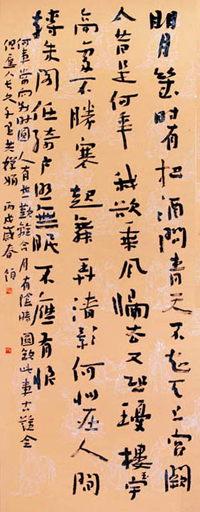 明月幾时有把酒問青天不知天上宫闕
今昔是何年我欲乘风歸去又恐瓊樓玉宇
高處不勝寒起舞弄清影何似在人間
轉朱阁低綺户照無眠不應有恨
何事长向别时圆人有悲歡離合月有陰晴圆缺此事古難全
但愿人长久千里共嬋娟丙戌歲春